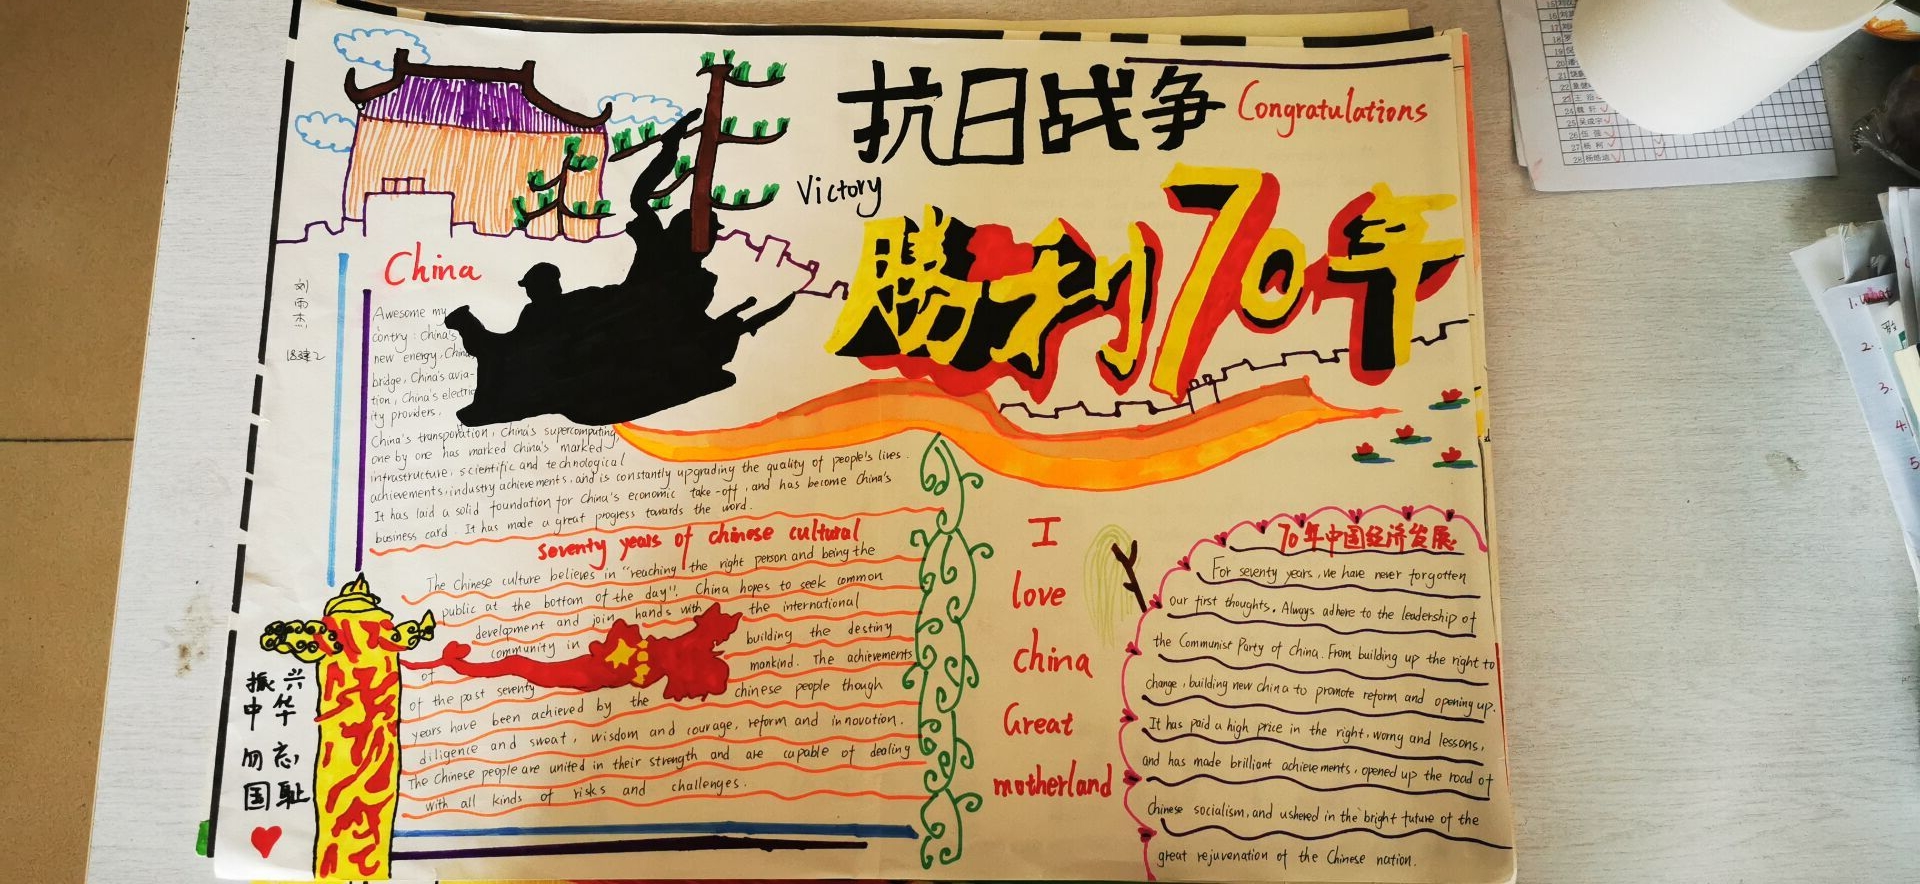 抗日战争
Congratulations
Victory
勝利70年
China
刘雨杰
Awesome my
contry: China's
new energy, China
bridge, China's avia-
tion, China's electric
ity providers.
China's transporation, China's supercomputing,
one by one has marked China's marked
infrastructure, scientific and technological
achievements, industry achievements, and is constantly upgrading the quality of people's lives.
It has laid a solid foundation for China's economic take-off, and has become China's
business card. It has made a great progress towards the word.
seventy years of chinese cultural
The Chinese culture believes in "reaching the right person and being the
public at the bottom of the day". China hopes to seek common
development and join hands with the international
community in building the destiny
of mankind. The achievements
of the past seventy chinese people though
years have been achieved by the
diligence and sweat, wisdom and courage, reform and innovation.
The Chinese people are united in their strength and are capable of dealing
with all kinds of risks and challenges.
振兴
中华
勿忘
国耻
I
love
china
Great
motherland
70年中国经济发展
For seventy years, we have never forgotten
our first thoughts. Always adhere to the leadership of
the Communist Party of China. From building up the right to
change, building new china to promote reform and opening up.
It has paid a high price in the right, worny and lessons,
and has made brilliant achievements, opened up the road of
Chinese socialism, and ushered in the bright future of the
great rejuvenation of the Chinese nation.